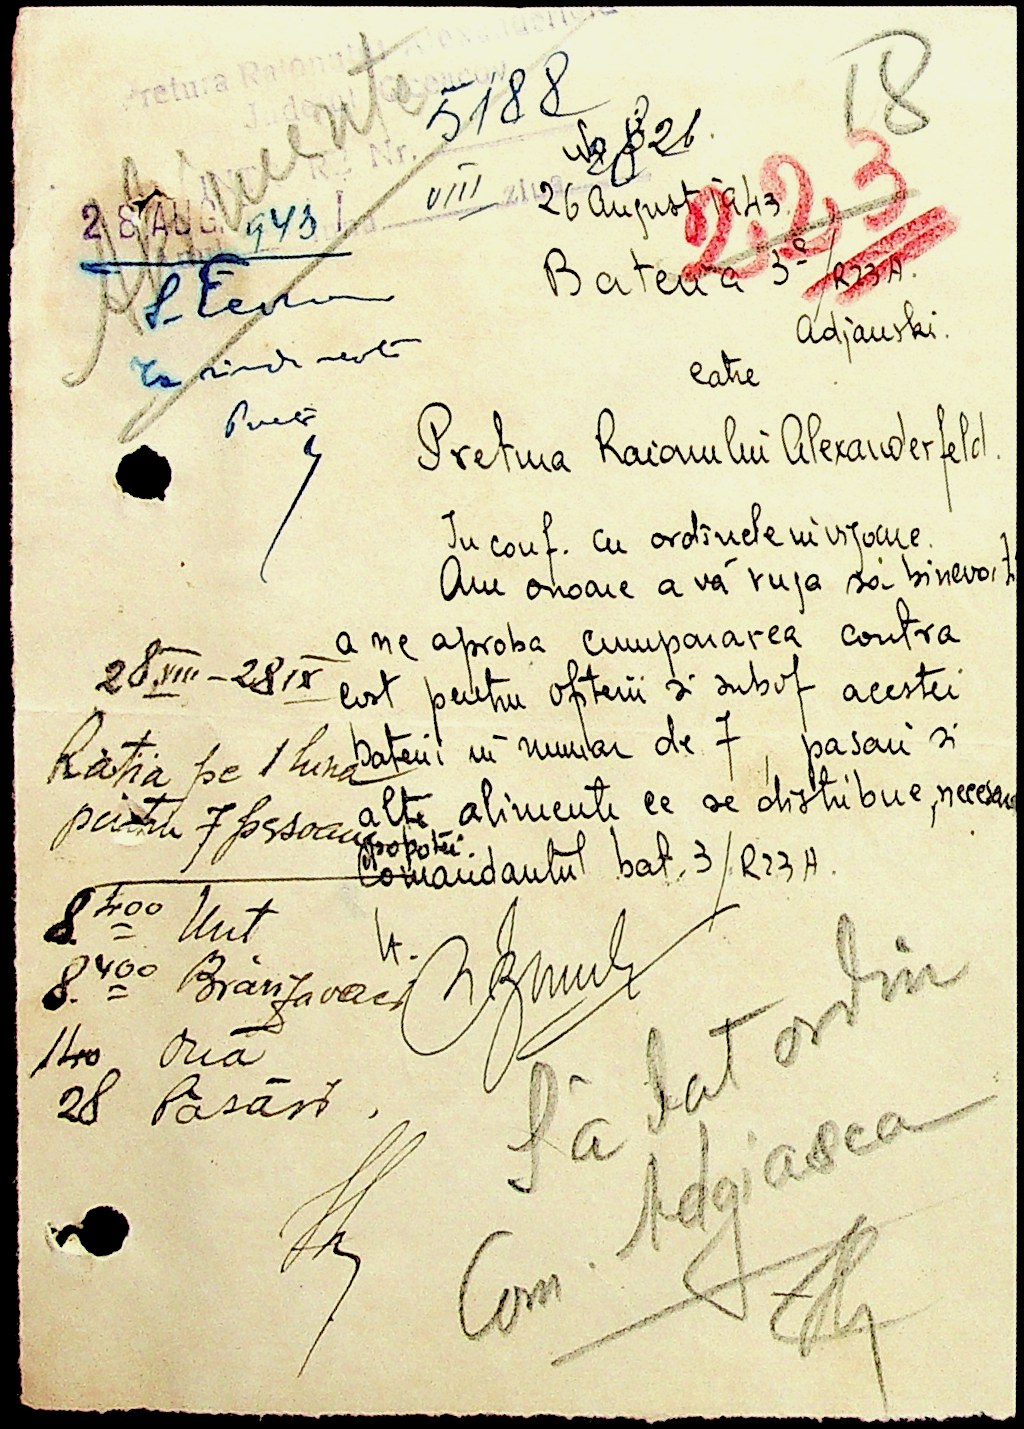 Pretura Raionului Alexanderfeld
Alimente
5188
VIII
28 AUG 943
18
No 826.
26 August 1943.
223
Bateria 3ᵉ/R23A.
Adjauski.
catre
Pretura Raionului Alexanderfeld.
In conf. cu ordinele in vigoare.
Am onoare a vă ruga să binevoiti
a ne aproba cumpararea contra
cost pentru ofiterii si subof acestei
baterii in numar de 7, pasari si
alte alimente ce se distribue, necesare
popotei.
Comandantul bat. 3/R23A.
28 VIII – 28 IX
Rația pe 1 luna
pentru 7 persoane
8.400 Unt
8.400 Brânză vaci
140 Ouă
28 Pasări.
Să dat ordin
Com. Adgiasca